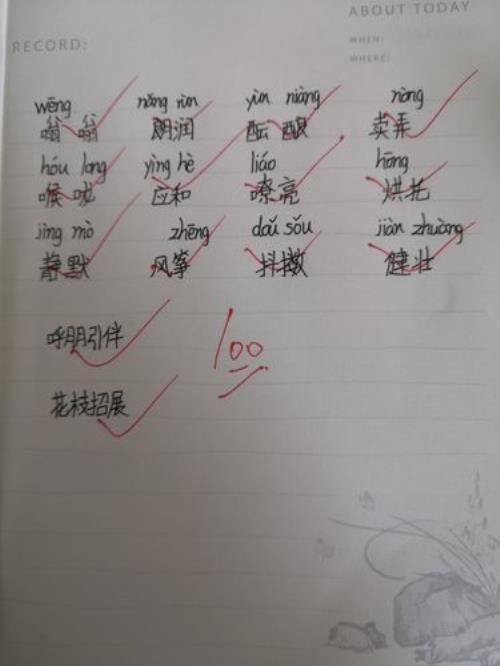 ABOUT TODAY
RECORD:
WHEN:
WHERE:
wēng nǎng rùn yùn niàng nòng
嗡嗡 朗润 酝酿 卖弄
hóu long yìng hè liáo hōng
喉咙 应和 嘹亮 烘托
jìng mò zhēng dǒu sǒu jiàn zhuàng
静默 风筝 抖擞 健壮
呼朋引伴 100
花枝招展